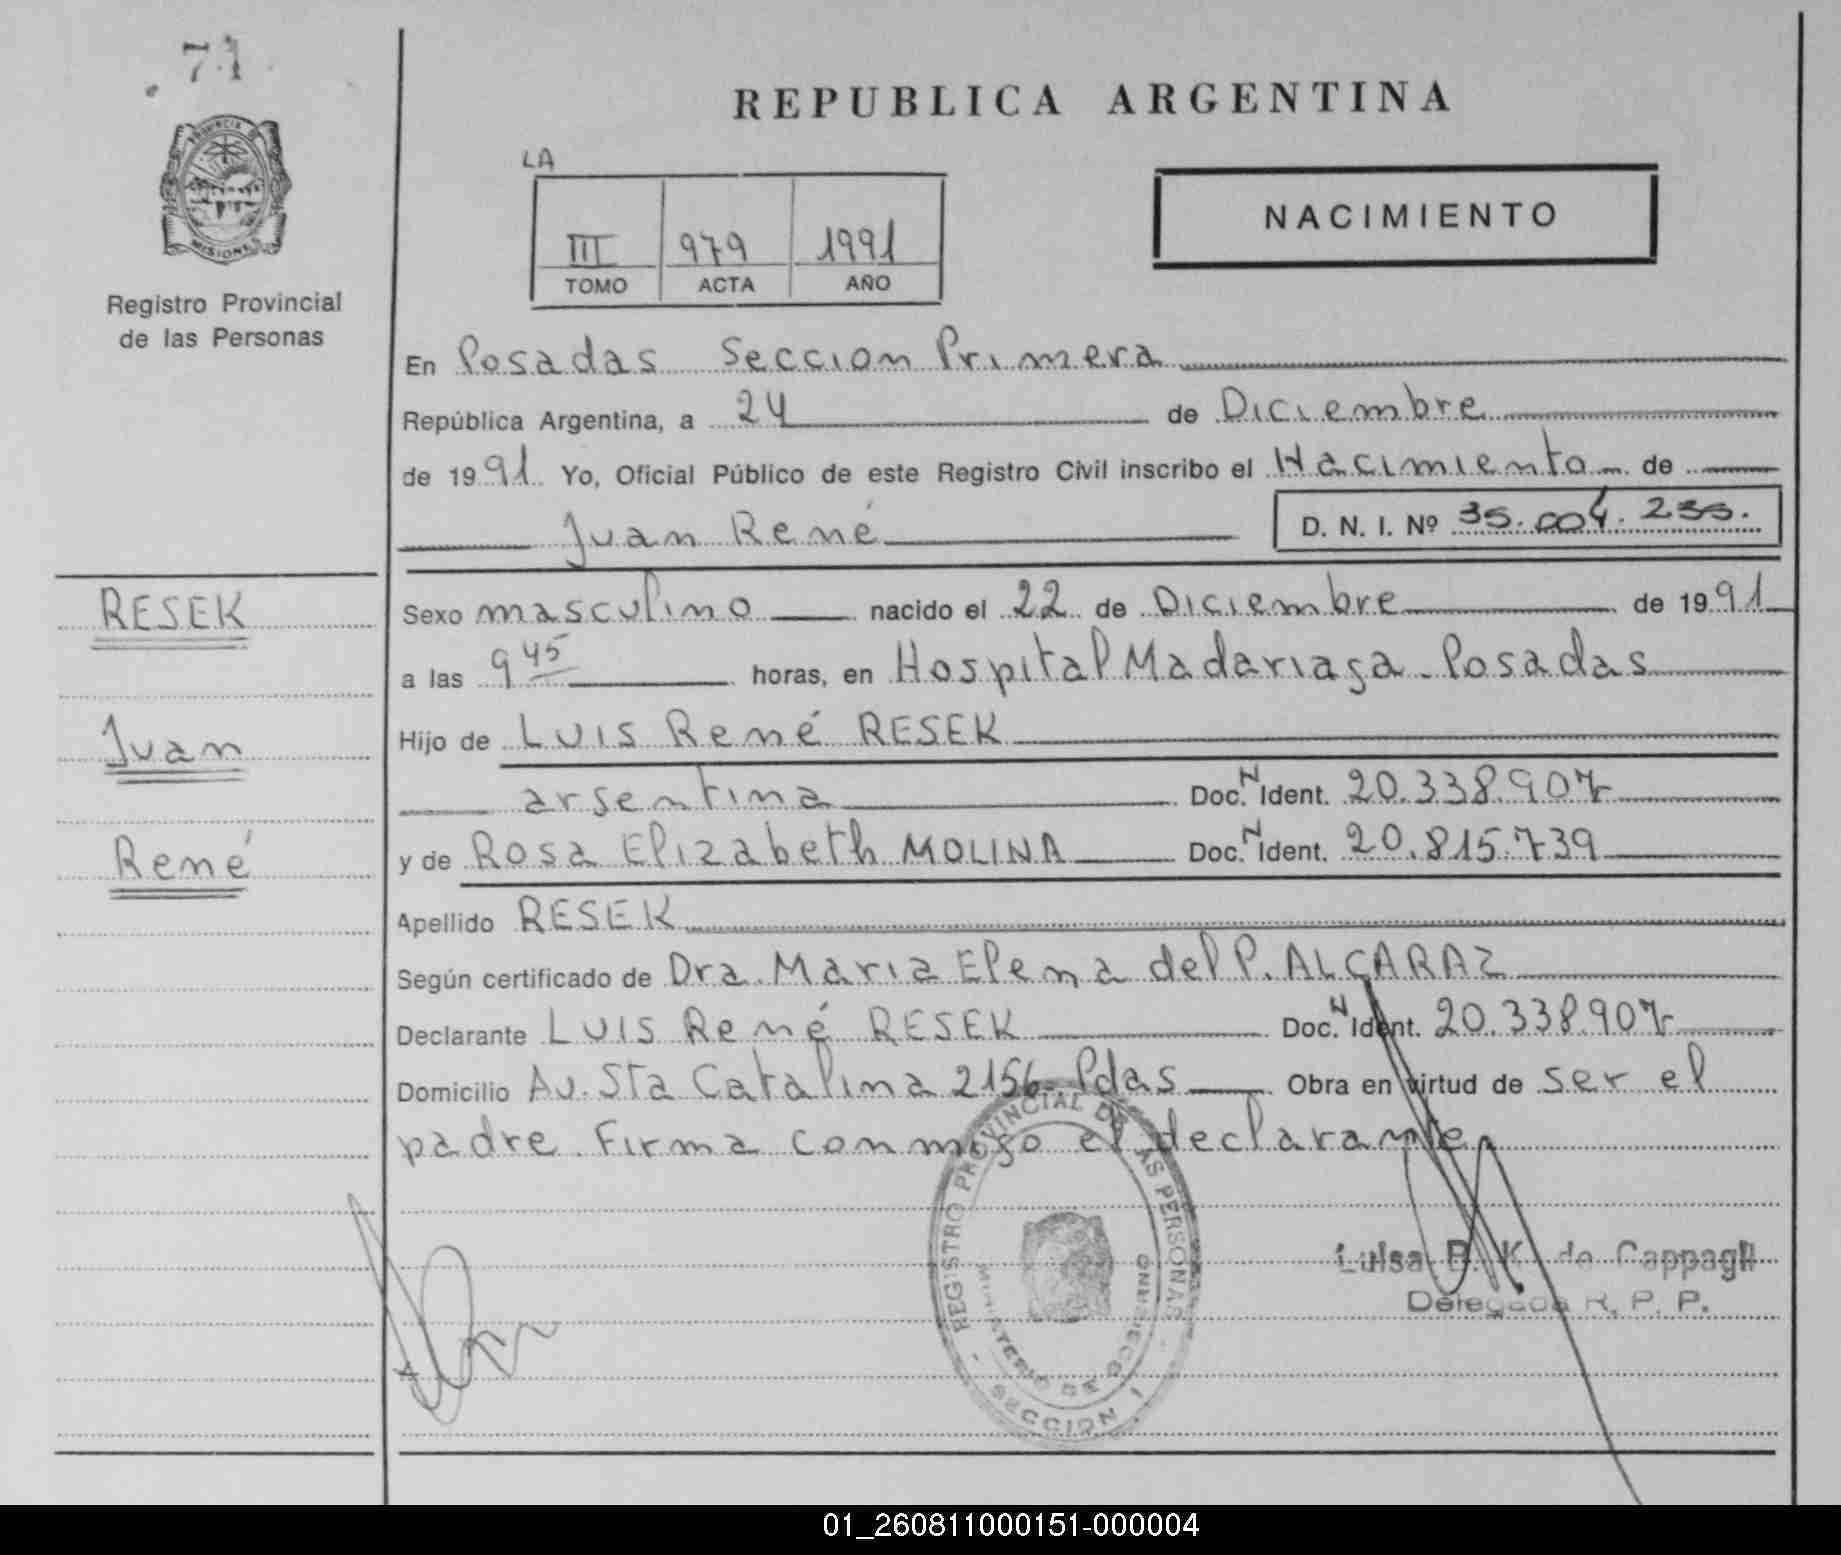 71
PROVINCIA DE
MISIONES
Registro Provincial
de las Personas
REPUBLICA ARGENTINA
LA
III 979 1991
TOMO ACTA AÑO
NACIMIENTO
En Posadas Seccion Primera
República Argentina, a 24 de Diciembre
de 1991 Yo, Oficial Público de este Registro Civil inscribo el Nacimiento de
Juan René D. N. I. Nº 35.004.233.
RESEK
Juan
René
Sexo masculino nacido el 22 de Diciembre de 1991
a las 9 45 horas, en Hospital Madariaga. Posadas
Hijo de LUIS René RESEK
argentina Doc. N Ident. 20.338.907
y de Rosa Elizabeth MOLINA Doc. N Ident. 20.815.739
Apellido RESEK
Según certificado de Dra. Maria Elena del P. ALCARAZ
Declarante LUIS René RESEK Doc. N Ident. 20.338.907
Domicilio Av. Sta Catalina 2156 Pdas Obra en virtud de ser el
padre. Firma conmigo el declarante
REGISTRO PROVINCIAL DE LAS PERSONAS
MINISTERIO DE GOBIERNO
SECCION 1
Luisa B. K. de Cappagli
Delegada R. P. P.
01_260811000151-000004